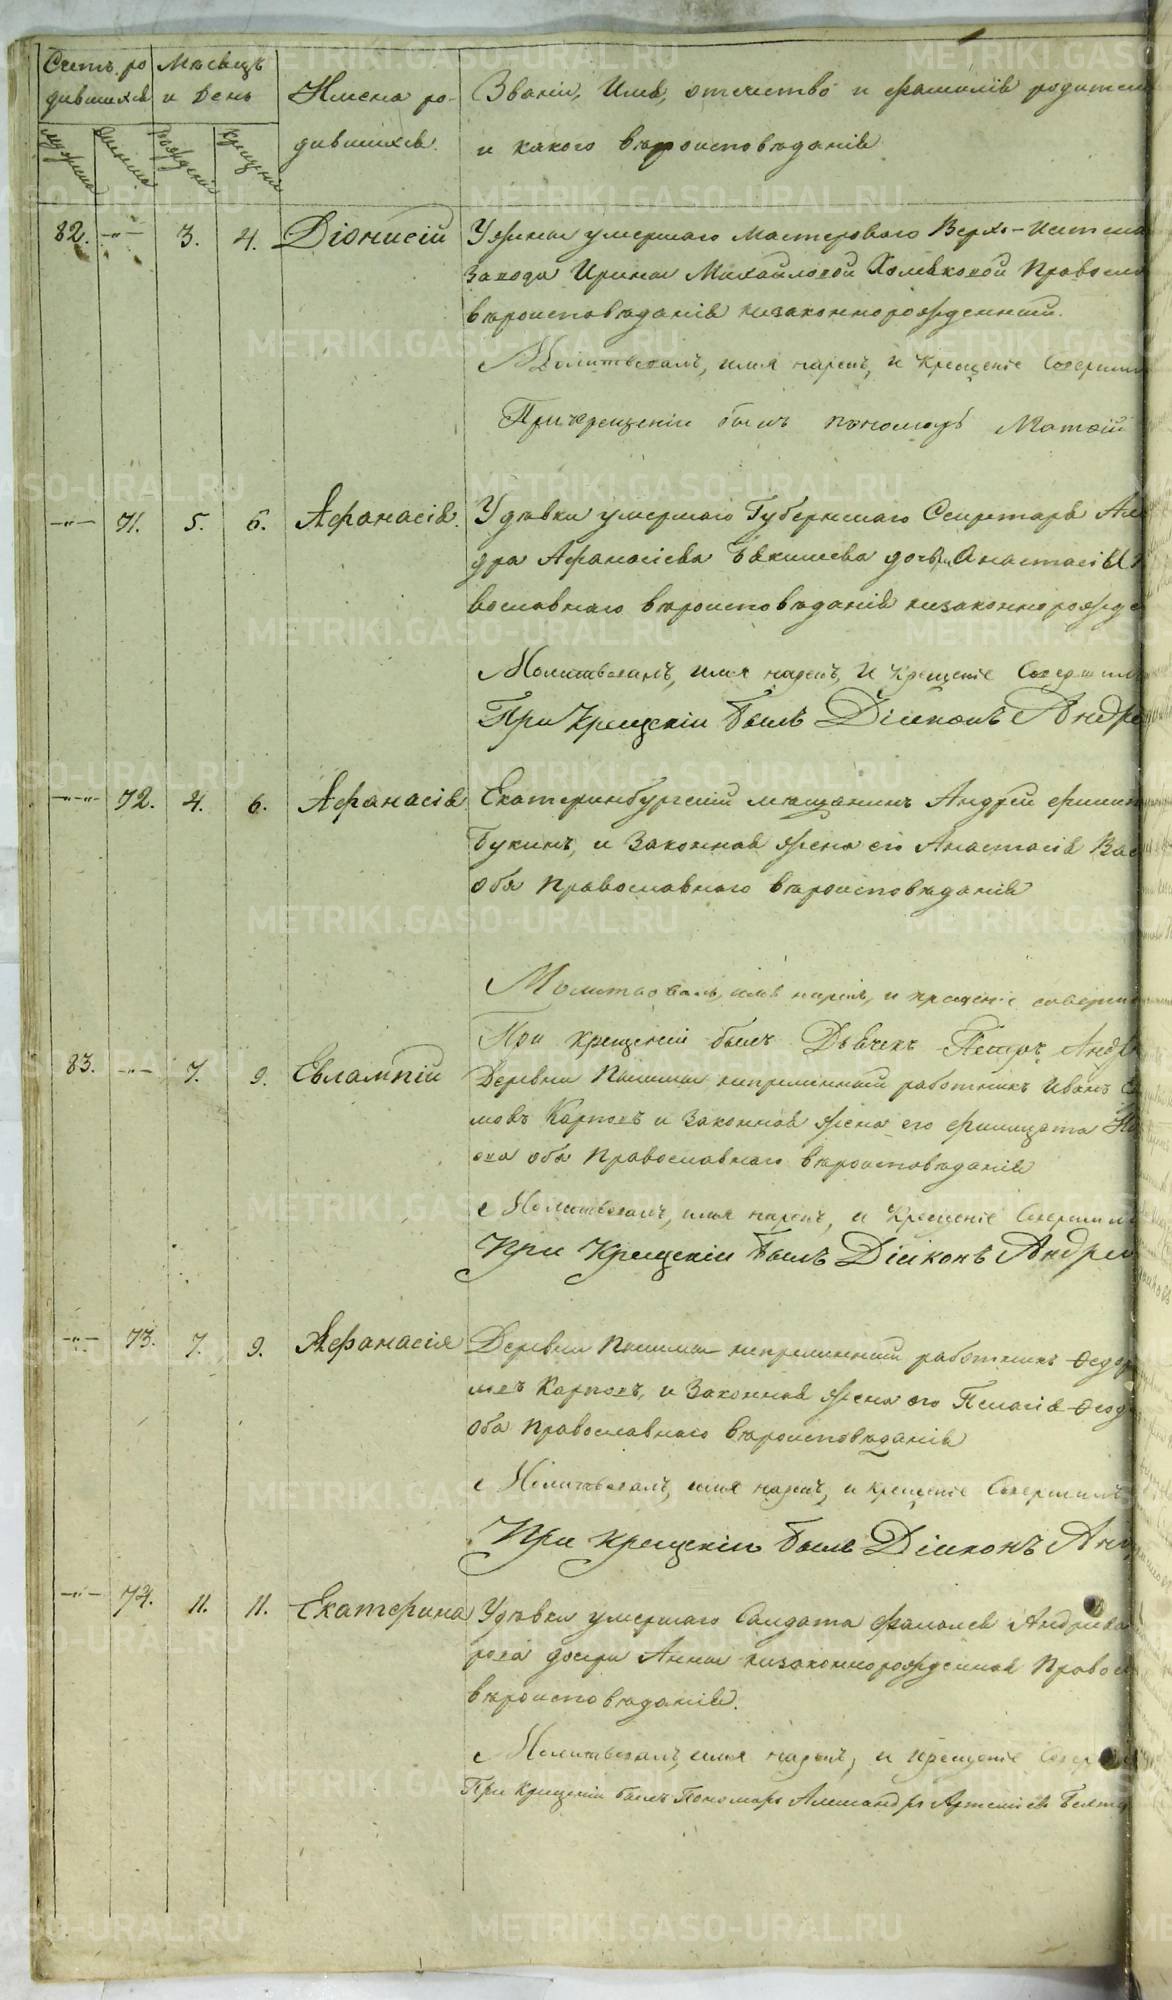 Счетъ ро Мѣсяцъ
дившихся и День Имена ро- Званіе, Имя, отечество и фамилія родител
мужеска женска рожденія крещенія дившихся. и какого вѣроисповѣданія
82. —„— 3. 4. Діонисій У жены умершаго Мастероваго Верхъ-Исетска
Завода Ирины Михайловой Хомяковой Правосла
вѣроисповѣданія незаконнорожденный.
Молитвовалъ, имя нарекъ, и Крещеніе Соверши
При крещеніи былъ пономарь Матѳій
—„— 71. 5. 6. Афанасія. У дѣвки умершаго Губернскаго Секретаря Але
дра Афанасіева дочь Анастасіи
вославнаго вѣроисповѣданія незаконнорожде
Молитвовалъ, имя нарекъ, и Крещеніе Совершил
При Крещеніи былъ Діаконъ Андре
—„— 72. 4. 6. Афанасія Екатеринбургскій мѣщанинъ Андрей Филип
Букинъ, и Законная жена его Анастасія Вас
оба Православнаго вѣроисповѣданія
Молитвовалъ, имя нарекъ, и крещеніе соверши
При крещеніи былъ Дьячекъ Петръ Андре
83. —„— 7. 9. Евлампій Деревни непремѣнный работникъ Иванъ
мовъ Карповъ и Законная жена его Филицата
ова оба Православнаго вѣроисповѣданія
Молитвовалъ, имя нарекъ, и Крещеніе Совершил
При Крещеніи былъ Діаконъ Андре
—„— 73. 7. 9. Афанасія Деревни непремѣнный работникъ Ѳедор
Карповъ, и Законная жена его Пелагія Ѳеод
Оба Православнаго вѣроисповѣданія
Молитвовалъ, имя нарекъ, и крещеніе Совершилъ
При крещеніи былъ Діаконъ Анд
—„— 74. 11. 11. Екатерина У дѣвки умершаго Салдата Андреева
рова дочери Анны незаконнорожденная Правосл
вѣроисповѣданія.
Молитвовалъ, имя нарекъ, и крещеніе Совер
При Крещеніи былъ Пономарь Александръ Артеміевъ
METRIKI.GASO-URAL.RU